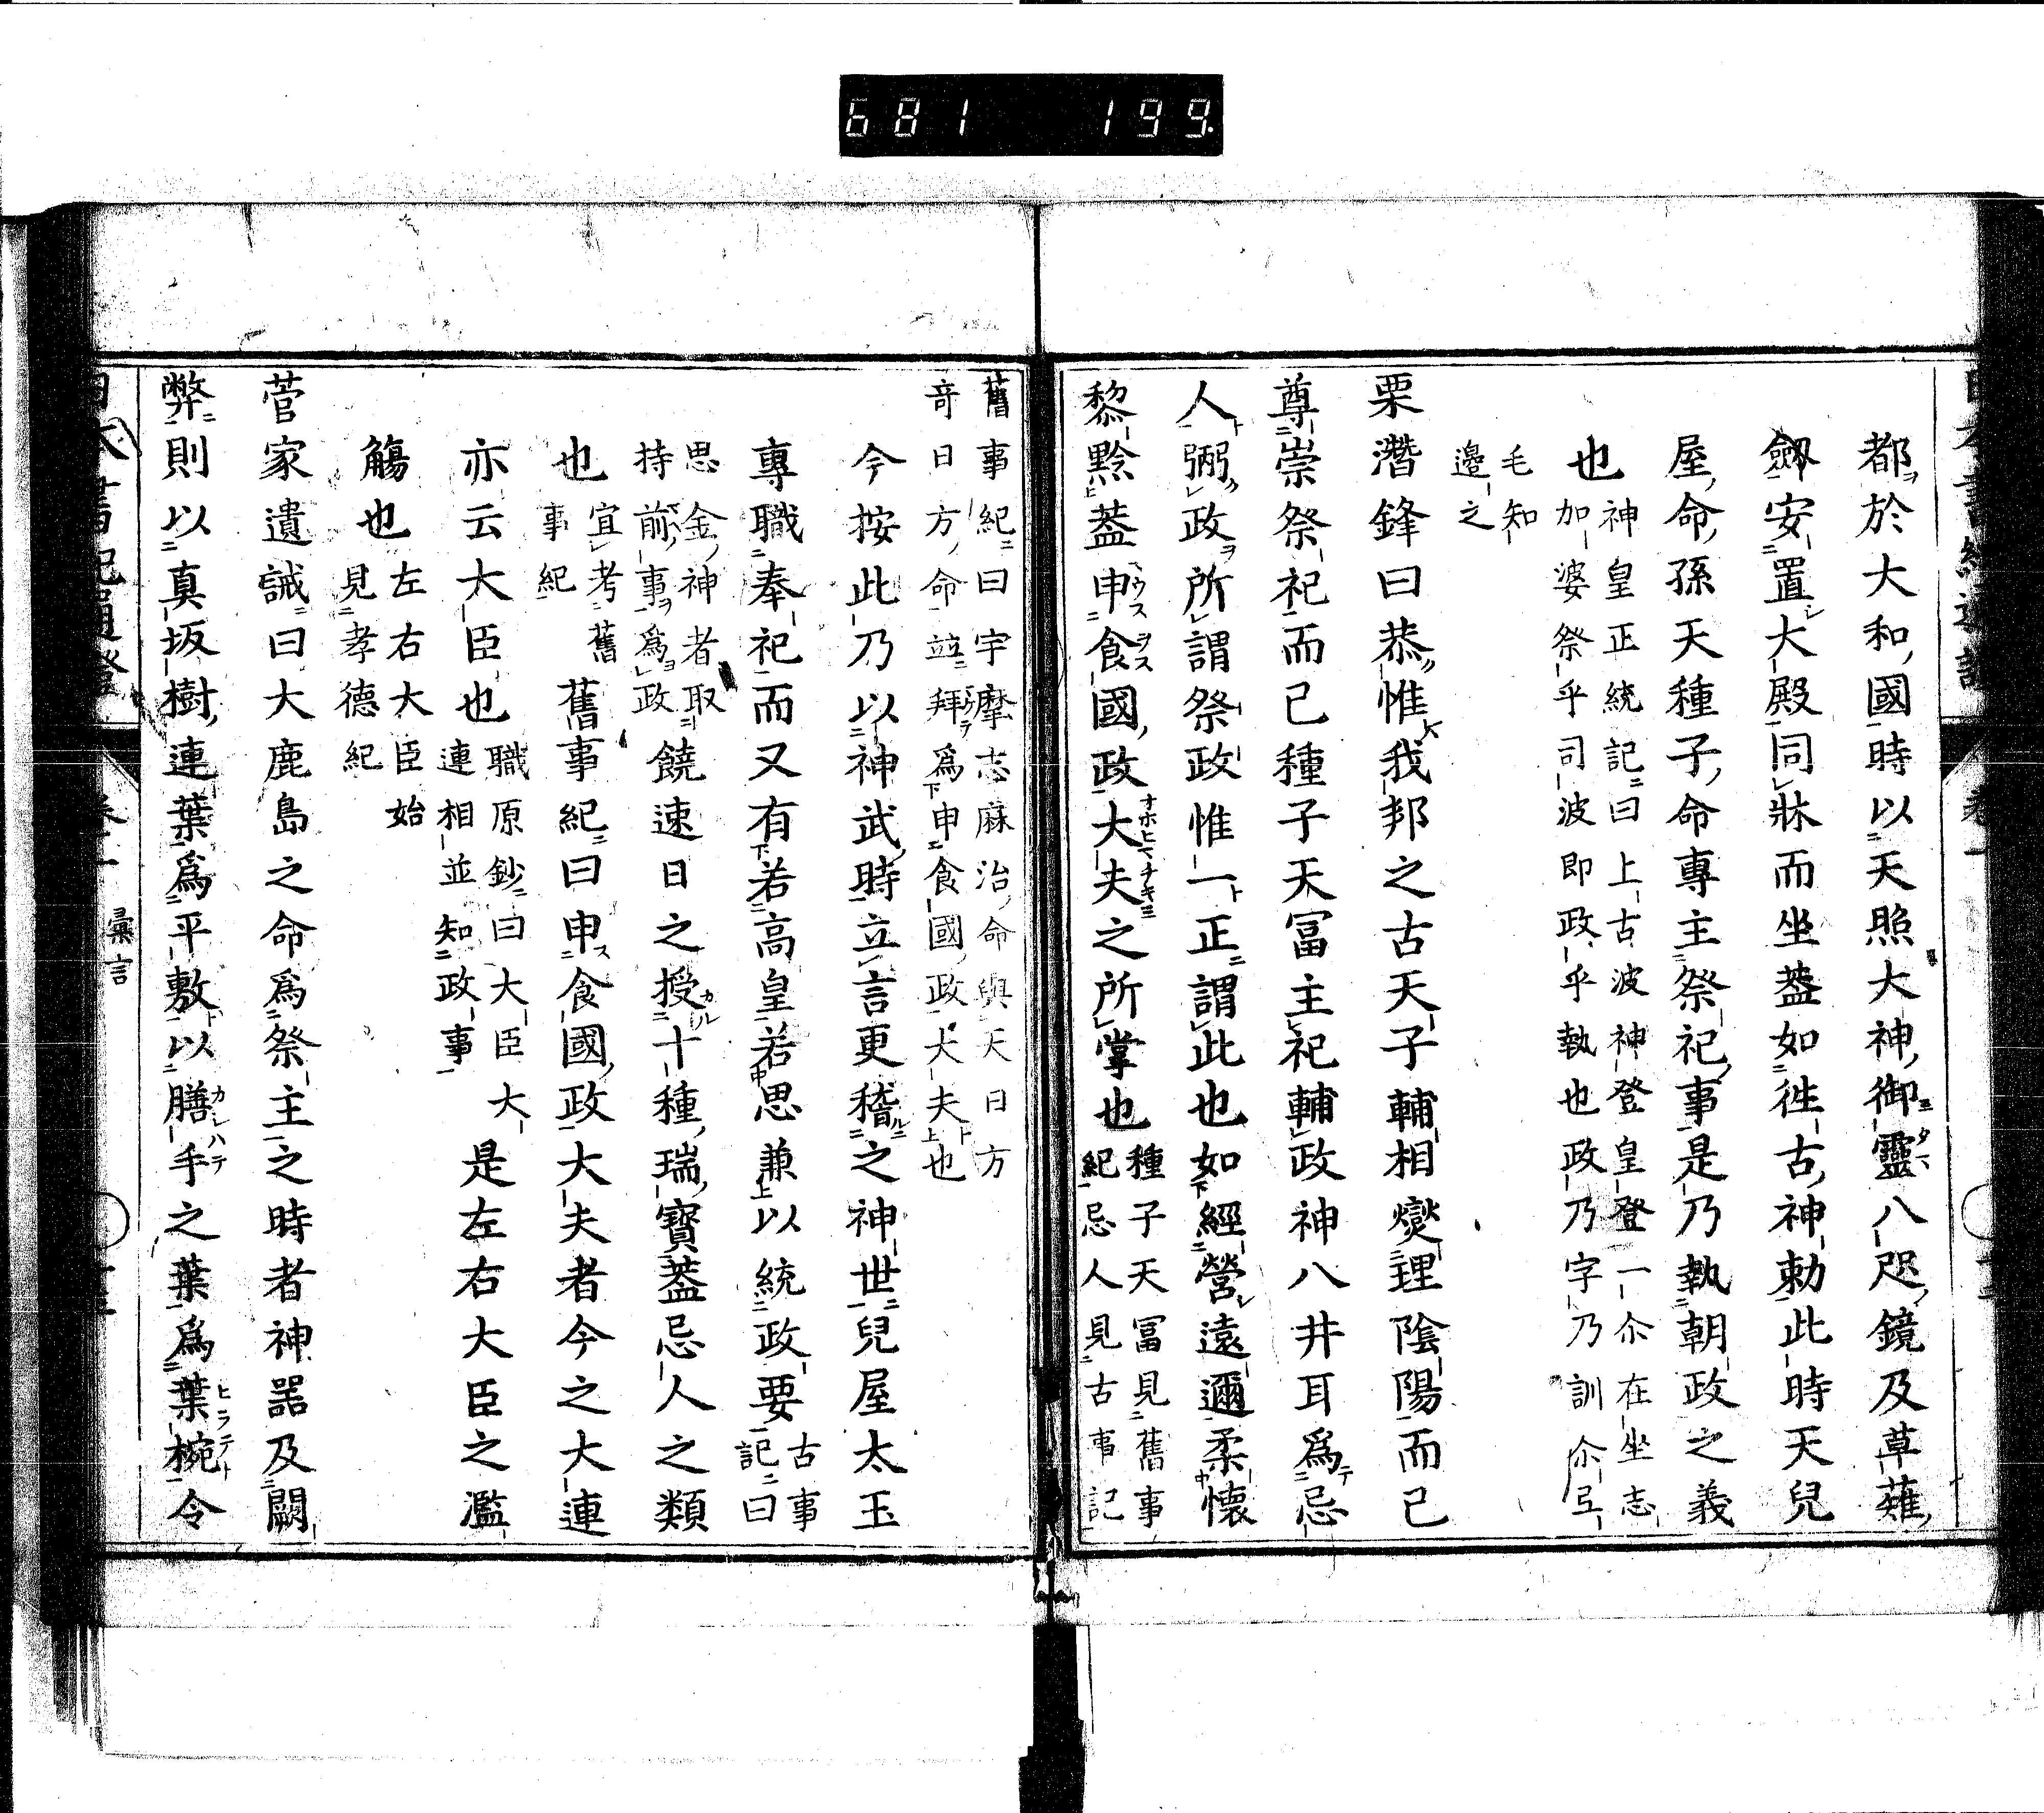 681 199.
都於大和國時以天照大神御靈八咫鏡及草薙
劔安置大殿同牀而坐蓋如徃古神勅此時天兒
屋命孫天種子命專主祭祀事是乃執朝政之義
也
神皇正統記曰上古波神登皇登一尒在坐志
加婆祭乎司波即政乎執也政乃字乃訓尒弖
毛知
邉之
栗潛鋒曰恭惟我邦之古天子輔相燮理陰陽而已
尊崇祭祀而已種子天冨主祀輔政神八井耳爲忌
人弼政所謂祭政惟一正謂此也如經營遠邇柔懷
黎黔蓋申食國政大夫之所掌也
種子天冨見舊事
紀忌人見古事記
舊事紀曰宇摩志麻治命與天日方
奇日方命並拜爲申食國政大夫也
今按此乃以神武時立言更稽之神世兒屋太玉
專職奉祀而又有若高皇若思兼以統政要
古事
記曰
思金神者取
持前事爲政
饒速日之授十種瑞寶蓋忌人之類
也
宜考舊
事紀
舊事紀曰申食國政大夫者今之大連
亦云大臣也
職原鈔曰大臣大
連相並知政事
是左右大臣之濫
觴也
左右大臣始
見孝德紀
菅家遺誡曰大鹿島之命爲祭主之時者神器及闕
弊則以真坂樹連葉爲平敷以膳手之葉爲葉椀令
彙言